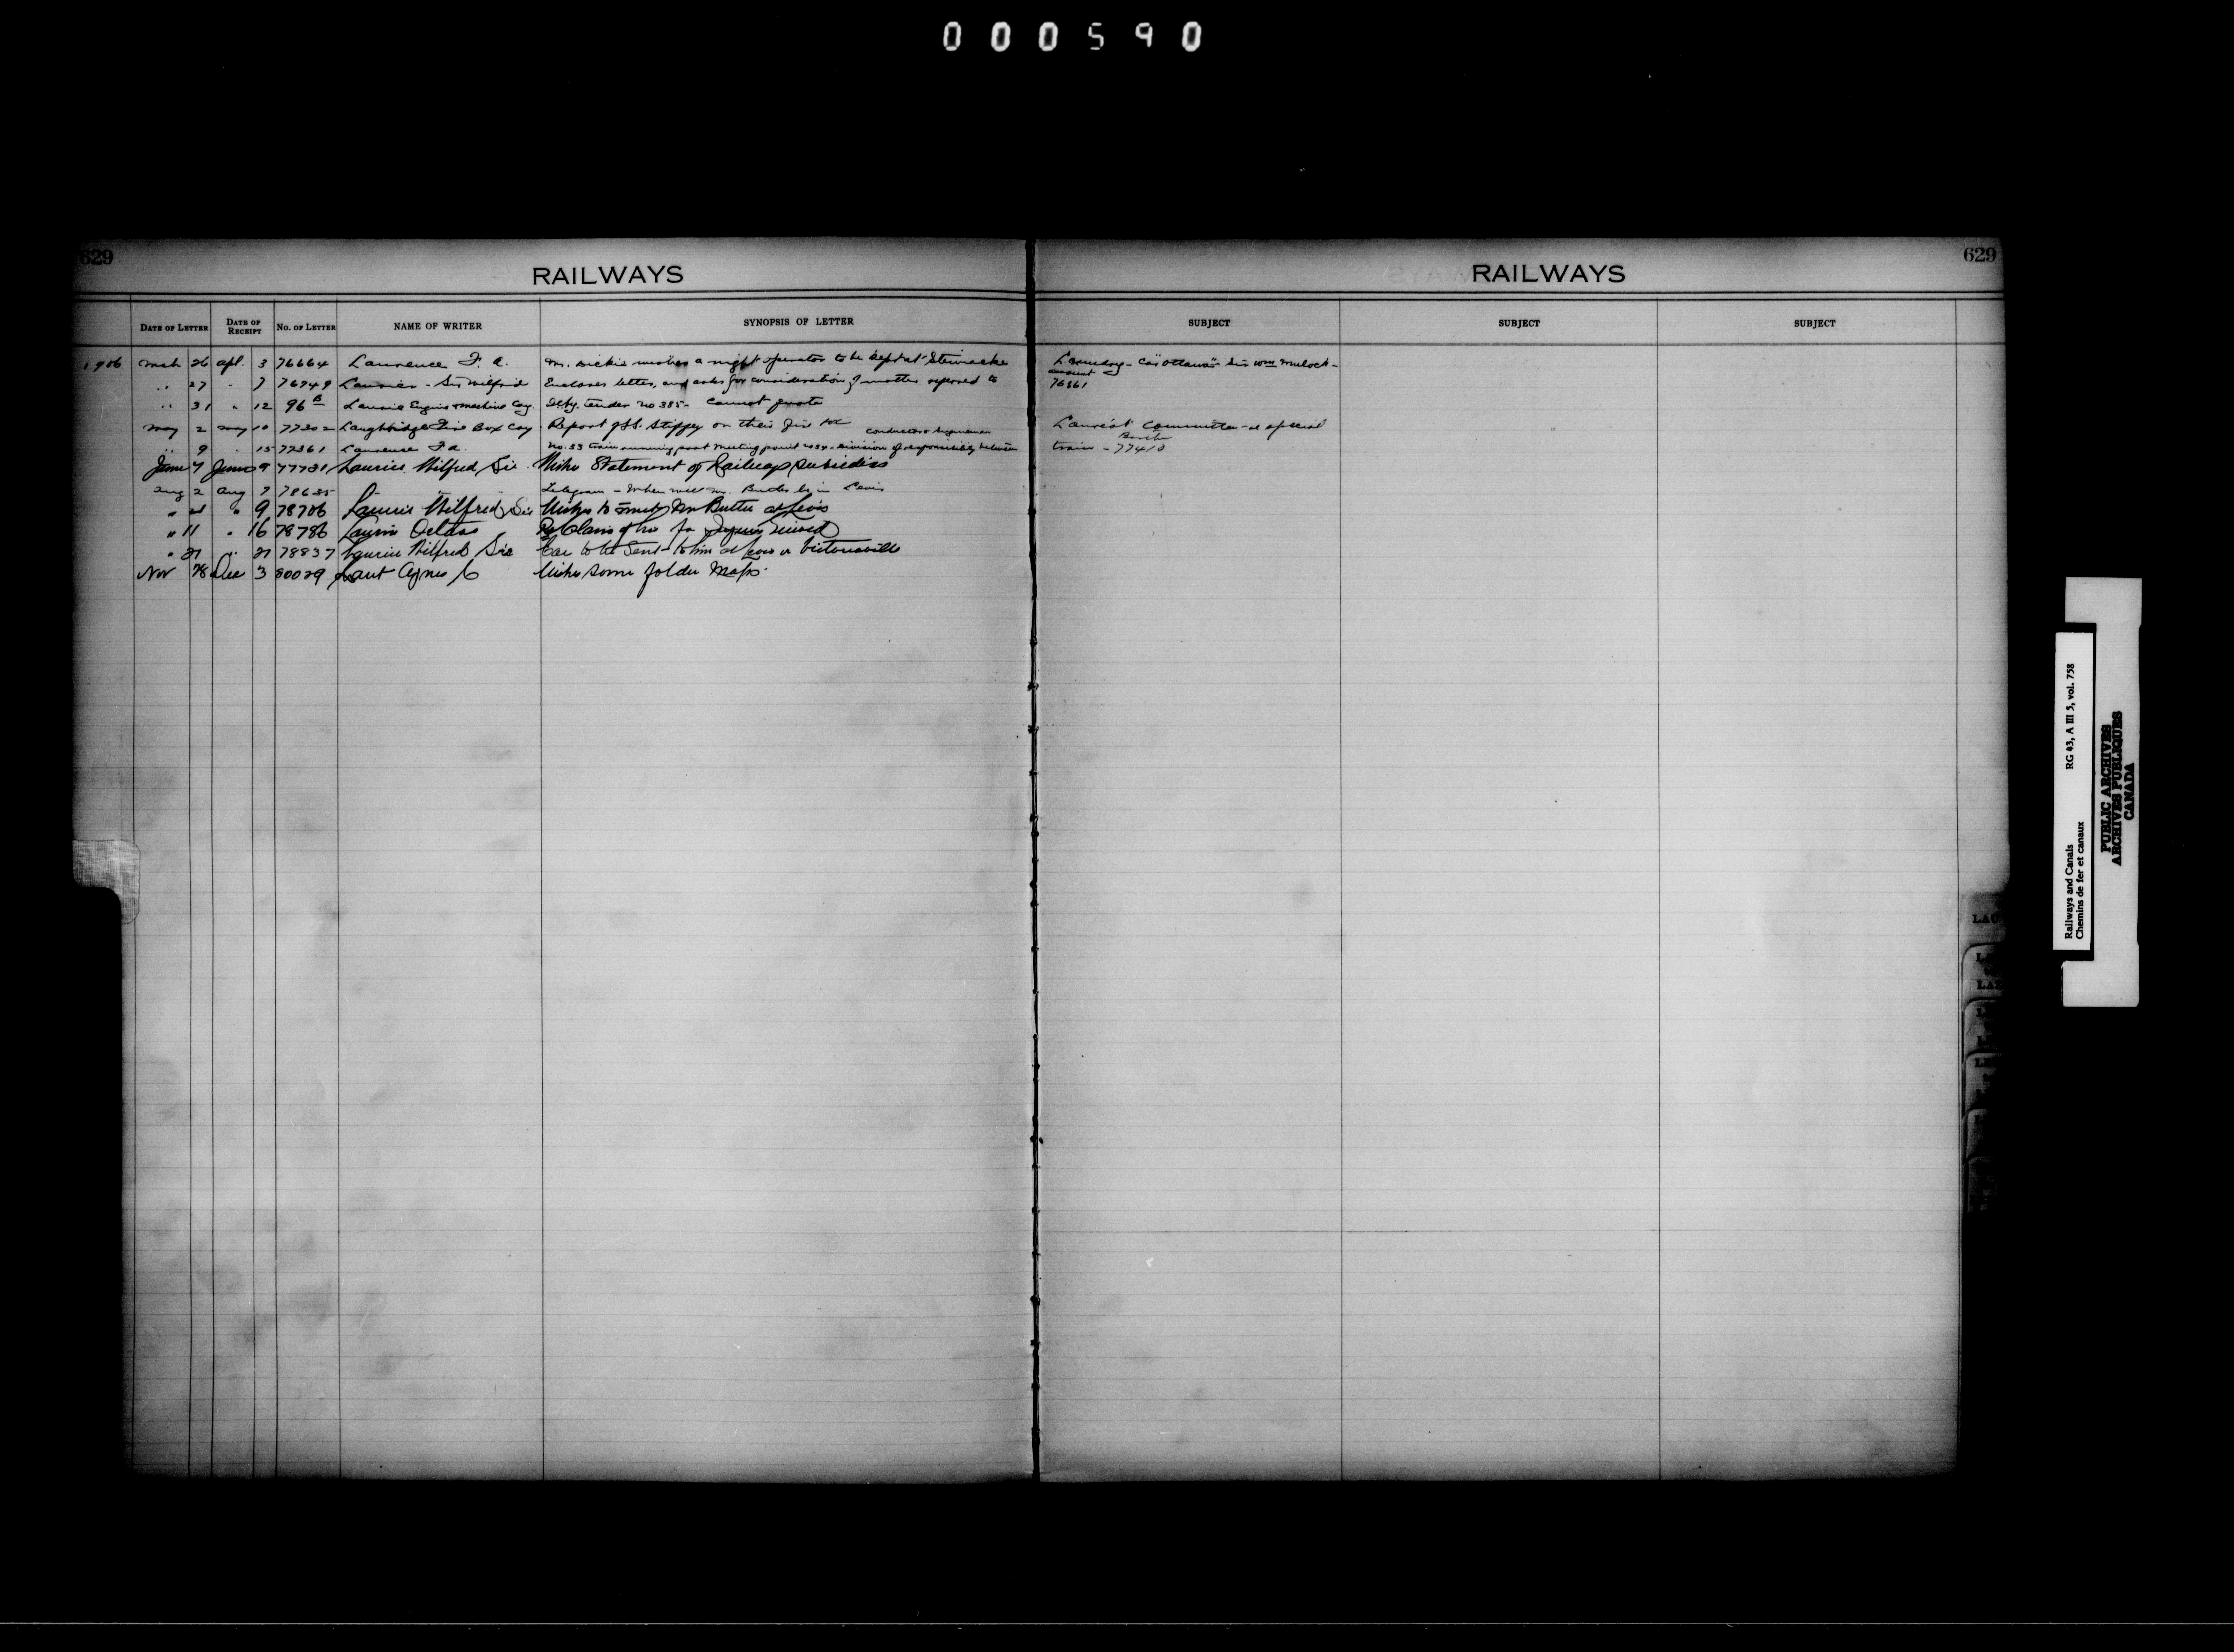 000590
629
RAILWAYS
DATE OF LETTER DATE OF RECEIPT No. OF LETTER NAME OF WRITER SYNOPSIS OF LETTER
1906 Mch 26 Apl. 3 76664 Laurence F. A. M. Dickie wishes a night operator to be kept at Stewiacke
" 27 " 7 76749 Laurier - Sir Wilfrid Encloses letter, and asks for consideration of matter referred to
" 31 " 12 96 B Laurie Engine & Machine Coy. Tender No 385 - Cannot quote
May 2 May 10 77302 Laughbridge Fire Box Coy. Report of Stiffey on their fire
conductor &
" 9 " 15 77361 Laurence F A. No. 33 train running past meeting point division of responsibility between
June 7 June 9 77731 Laurier Wilfred Sir Wishes Statement of Railway Subsidies
Aug 2 Aug 7 78635 " " Telegram - When will Mr. Butler be in Levis
" " 9 78706 Laurier Wilfred Sir Wishes to meet Mr Butler at Levis
" 11 " 16 78786 Laurin Octave Re Claim of for Injuries received
" 21 " 21 78837 Laurier Wilfred Sir Car to be Sent to him at Levis or Victoriaville
Nov 28 Dec 3 80029 Laut Agnes C Wishes some folder Maps.
RAILWAYS
629
SUBJECT SUBJECT SUBJECT
Laundry - Car "Ottawa" - Sir Wm Mulock -
account
76861
Committee - special
train - 77410
LAU
Railways and Canals RG 43, A III 5, vol. 758
Chemins de fer et canaux
PUBLIC ARCHIVES
ARCHIVES PUBLIQUES
CANADA